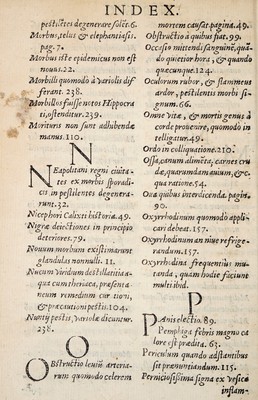 INDEX.
pestilẽtes degenerare solẽt. 6.
Morbus, telus & elephantiasis.
pag. 7.
Morbus iste epidemicus non est
nouus. 22.
Morbilli quomodo à variolis dif
ferant. 238.
Morbillos fuisse notos Hippocra
ti, ostenditur. 239.
Morituris non sunt adhibendæ
manus. 110.
N
NEapolitani regni ciuita-
tes ex morbis sporadi-
cis in pestilentes degenera-
runt. 32.
Nicephori Calixti historia. 49.
Nigræ deiectiones in principio
deteriores. 79.
Nouum morbum existimarunt
glandulas nonnulli. 11.
Nucum viridum destillatitia a-
qua cum theriaca, præsenta
neum remedium curationi,
& præcautioni pestis. 104.
Nuntij pestis, variolæ dicuntur.
238.
O
OBstructio leuiũ arteria-
rum quomodo celerem
mortem causat pagina. 49.
Obstructio á quibus fiat. 99.
Occasio mittendi sanguinẽ, quã-
do quietior hora, & quando
quæcunque. 124.
Oculorum rubor, & flammeus
ardor, pestilentis morbi si-
gnum. 66.
Omne vitæ, & mortis genus à
corde prouenire, quomodo in
telligatur. 49.
Ordo in colliquatione. 210.
Ossa, canum alimẽta, carnes cru
dæ, quarundam auium, & c.
qua ratione. 54.
Oua quibus interdicenda. pagin.
90.
Oxyrrhodinum quomodo appli-
cari debeat. 157.
Oxyrrhodinum an niue refrige-
randum. 157.
Oxyrrhodina frequentius mu-
tanda, quam hodie faciunt
multi ibid.
P
PAnis electio. 89.
Pemphiga febris magno ca
lore est prædita. 63.
Periculum quando adstantibus
sit prænuntiandum. 115.
Perniciosissima signa ex vesica
inflam-